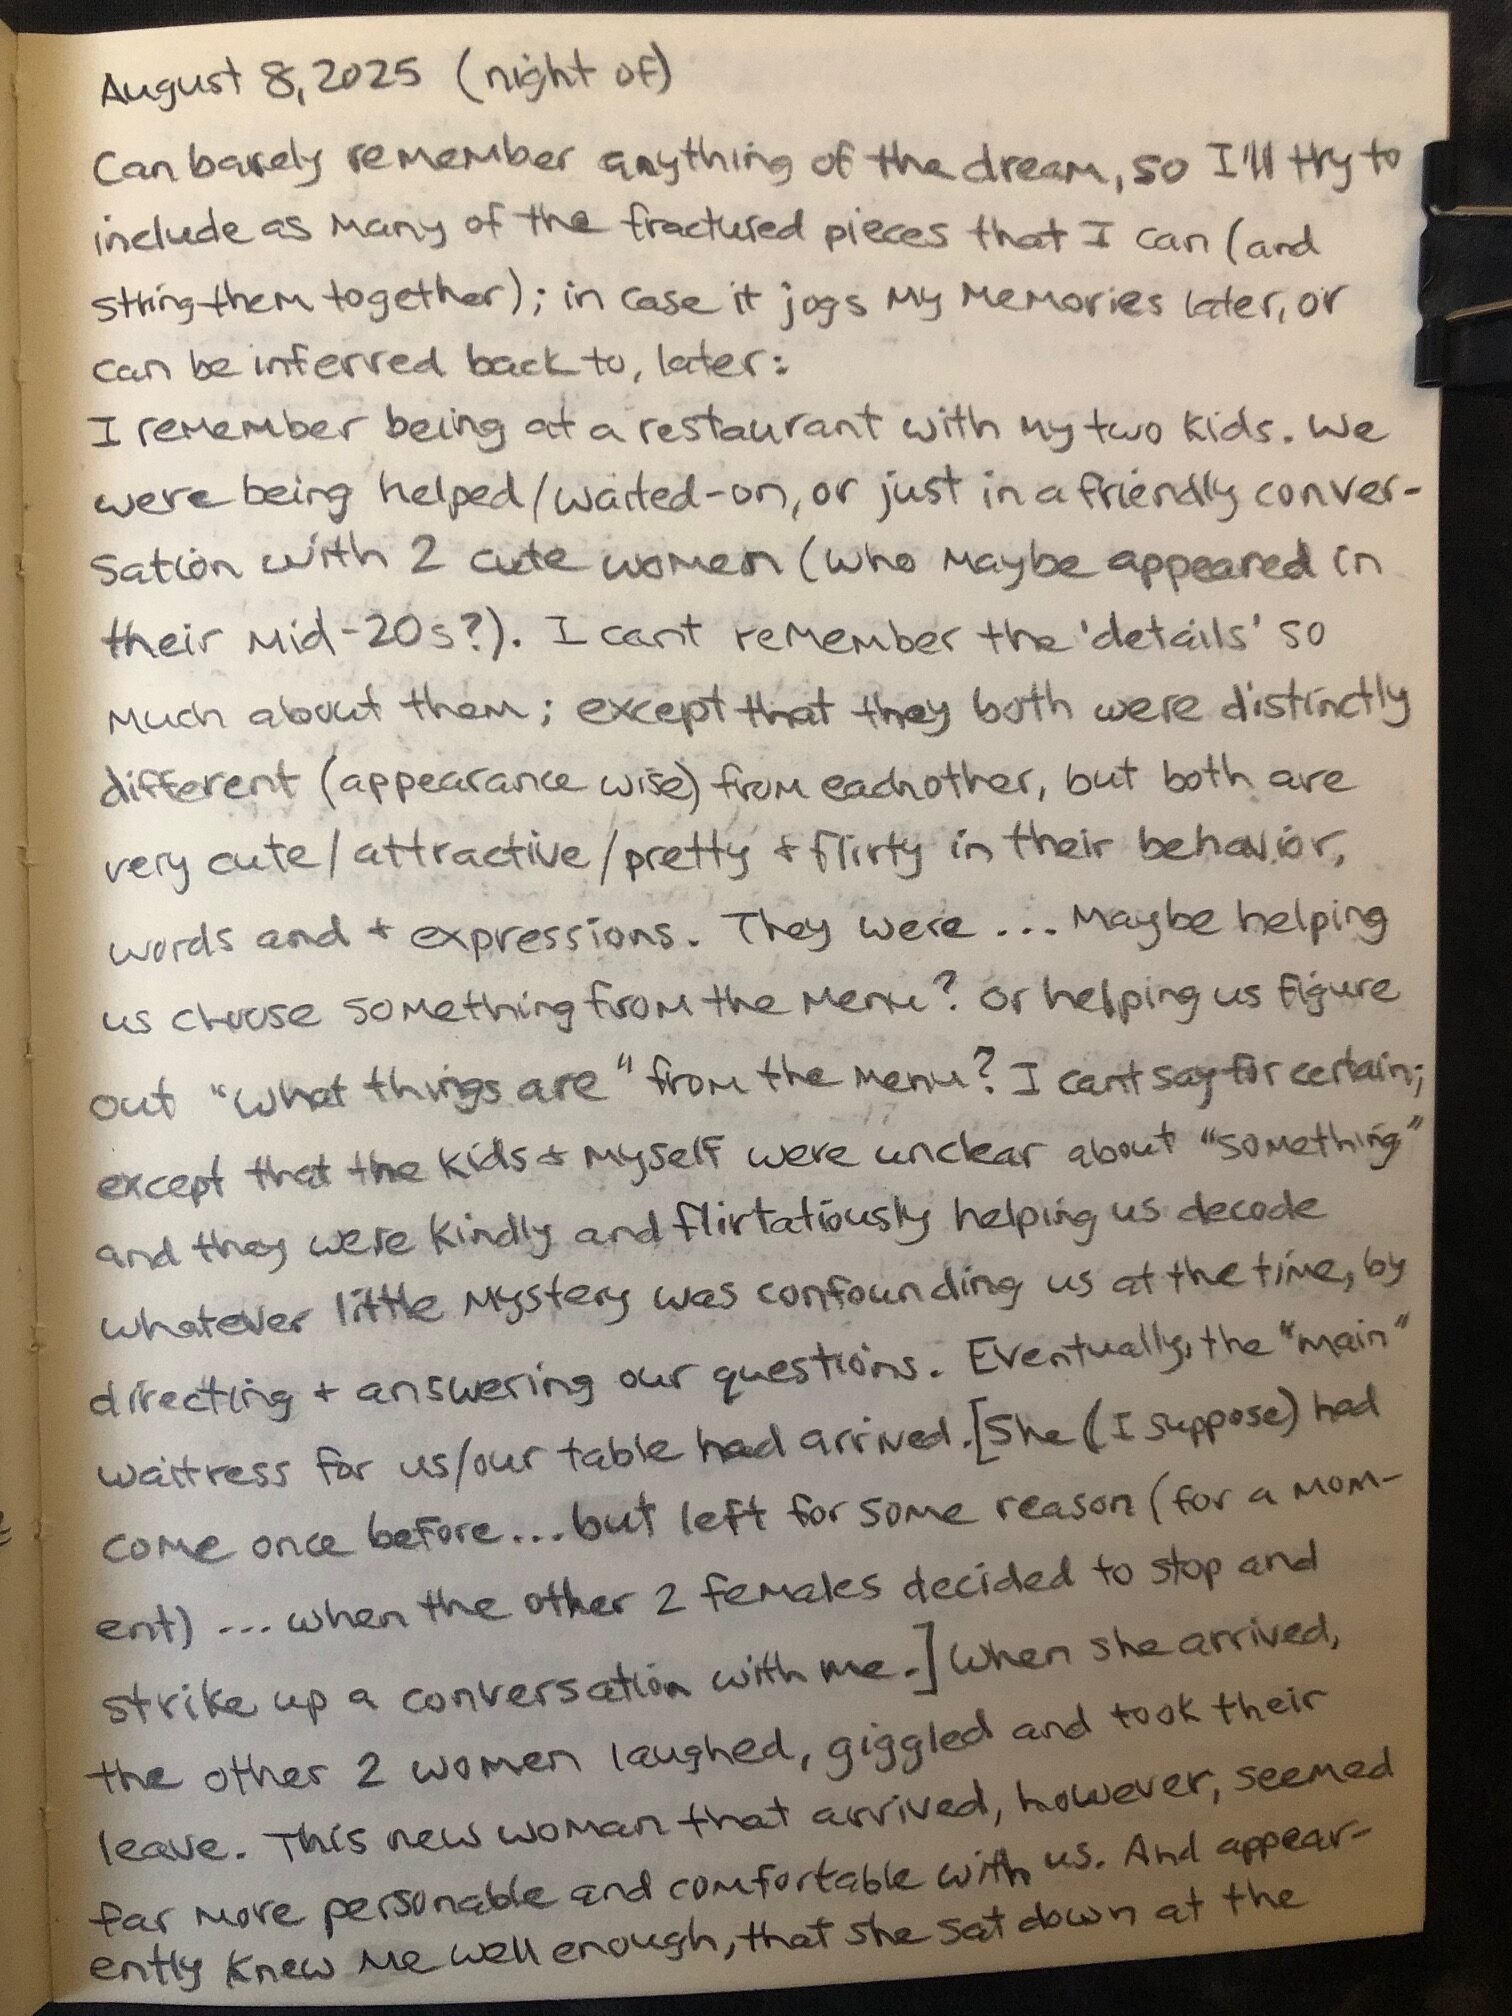 August 8, 2025 (night of)
Can barely remember anything of the dream, so I'll try to
include as many of the fractured pieces that I can (and
string them together); in case it jogs my memories later, or
can be inferred back to, later:
I remember being at a restaurant with my two kids. We
were being helped/waited-on, or just in a friendly conver-
sation with 2 cute women (who maybe appeared in
their mid-20s?). I cant remember the 'details' so
much about them; except that they both were distinctly
different (appearance wise) from eachother, but both are
very cute/attractive/pretty + flirty in their behavior,
words and + expressions. They were ... maybe helping
us choose something from the menu? or helping us figure
out "what things are" from the menu? I cant say for certain;
except that the kids + myself were unclear about "something"
and they were kindly and flirtatiously helping us decode
whatever little mystery was confounding us at the time, by
directing + answering our questions. Eventually, the "main"
waitress for us/our table had arrived. [She (I suppose) had
come once before...but left for some reason (for a mom-
ent) ... when the other 2 females decided to stop and
strike up a conversation with me.] When she arrived,
the other 2 women laughed, giggled and took their
leave. This new woman that arrived, however, seemed
far more personable and comfortable with us. And appear-
ently knew me well enough, that she sat down at the